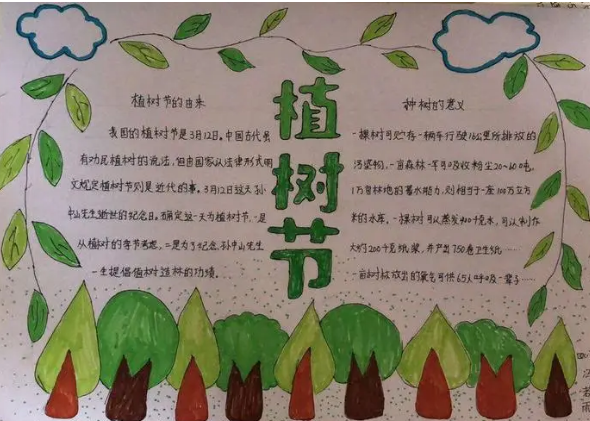 植树节
植树节的由来
我国的植树节是3月12日。中国古代虽
有劝民植树的说法,但由国家从法律形式明
文规定植树节则是近代的事。3月12日这天孙
中山先生逝世的纪念日。确定这一天为植树节,一是
从植树的季节考虑,二是为了纪念孙中山先生
一生提倡植树造林的功绩。
种树的意义
一棵树可贮存一辆车行驶16公里所排放的
污染物,一亩森林一年可吸收粉尘20~60吨,
1万亩林地的蓄水能力,则相当于一座100万立方
米的水库。一棵树可以蒸发
千克水,可以制作
大约200千克纸浆,并产出750卷卫生纸……
一亩树林放出的氧气可供65人呼吸一辈子……